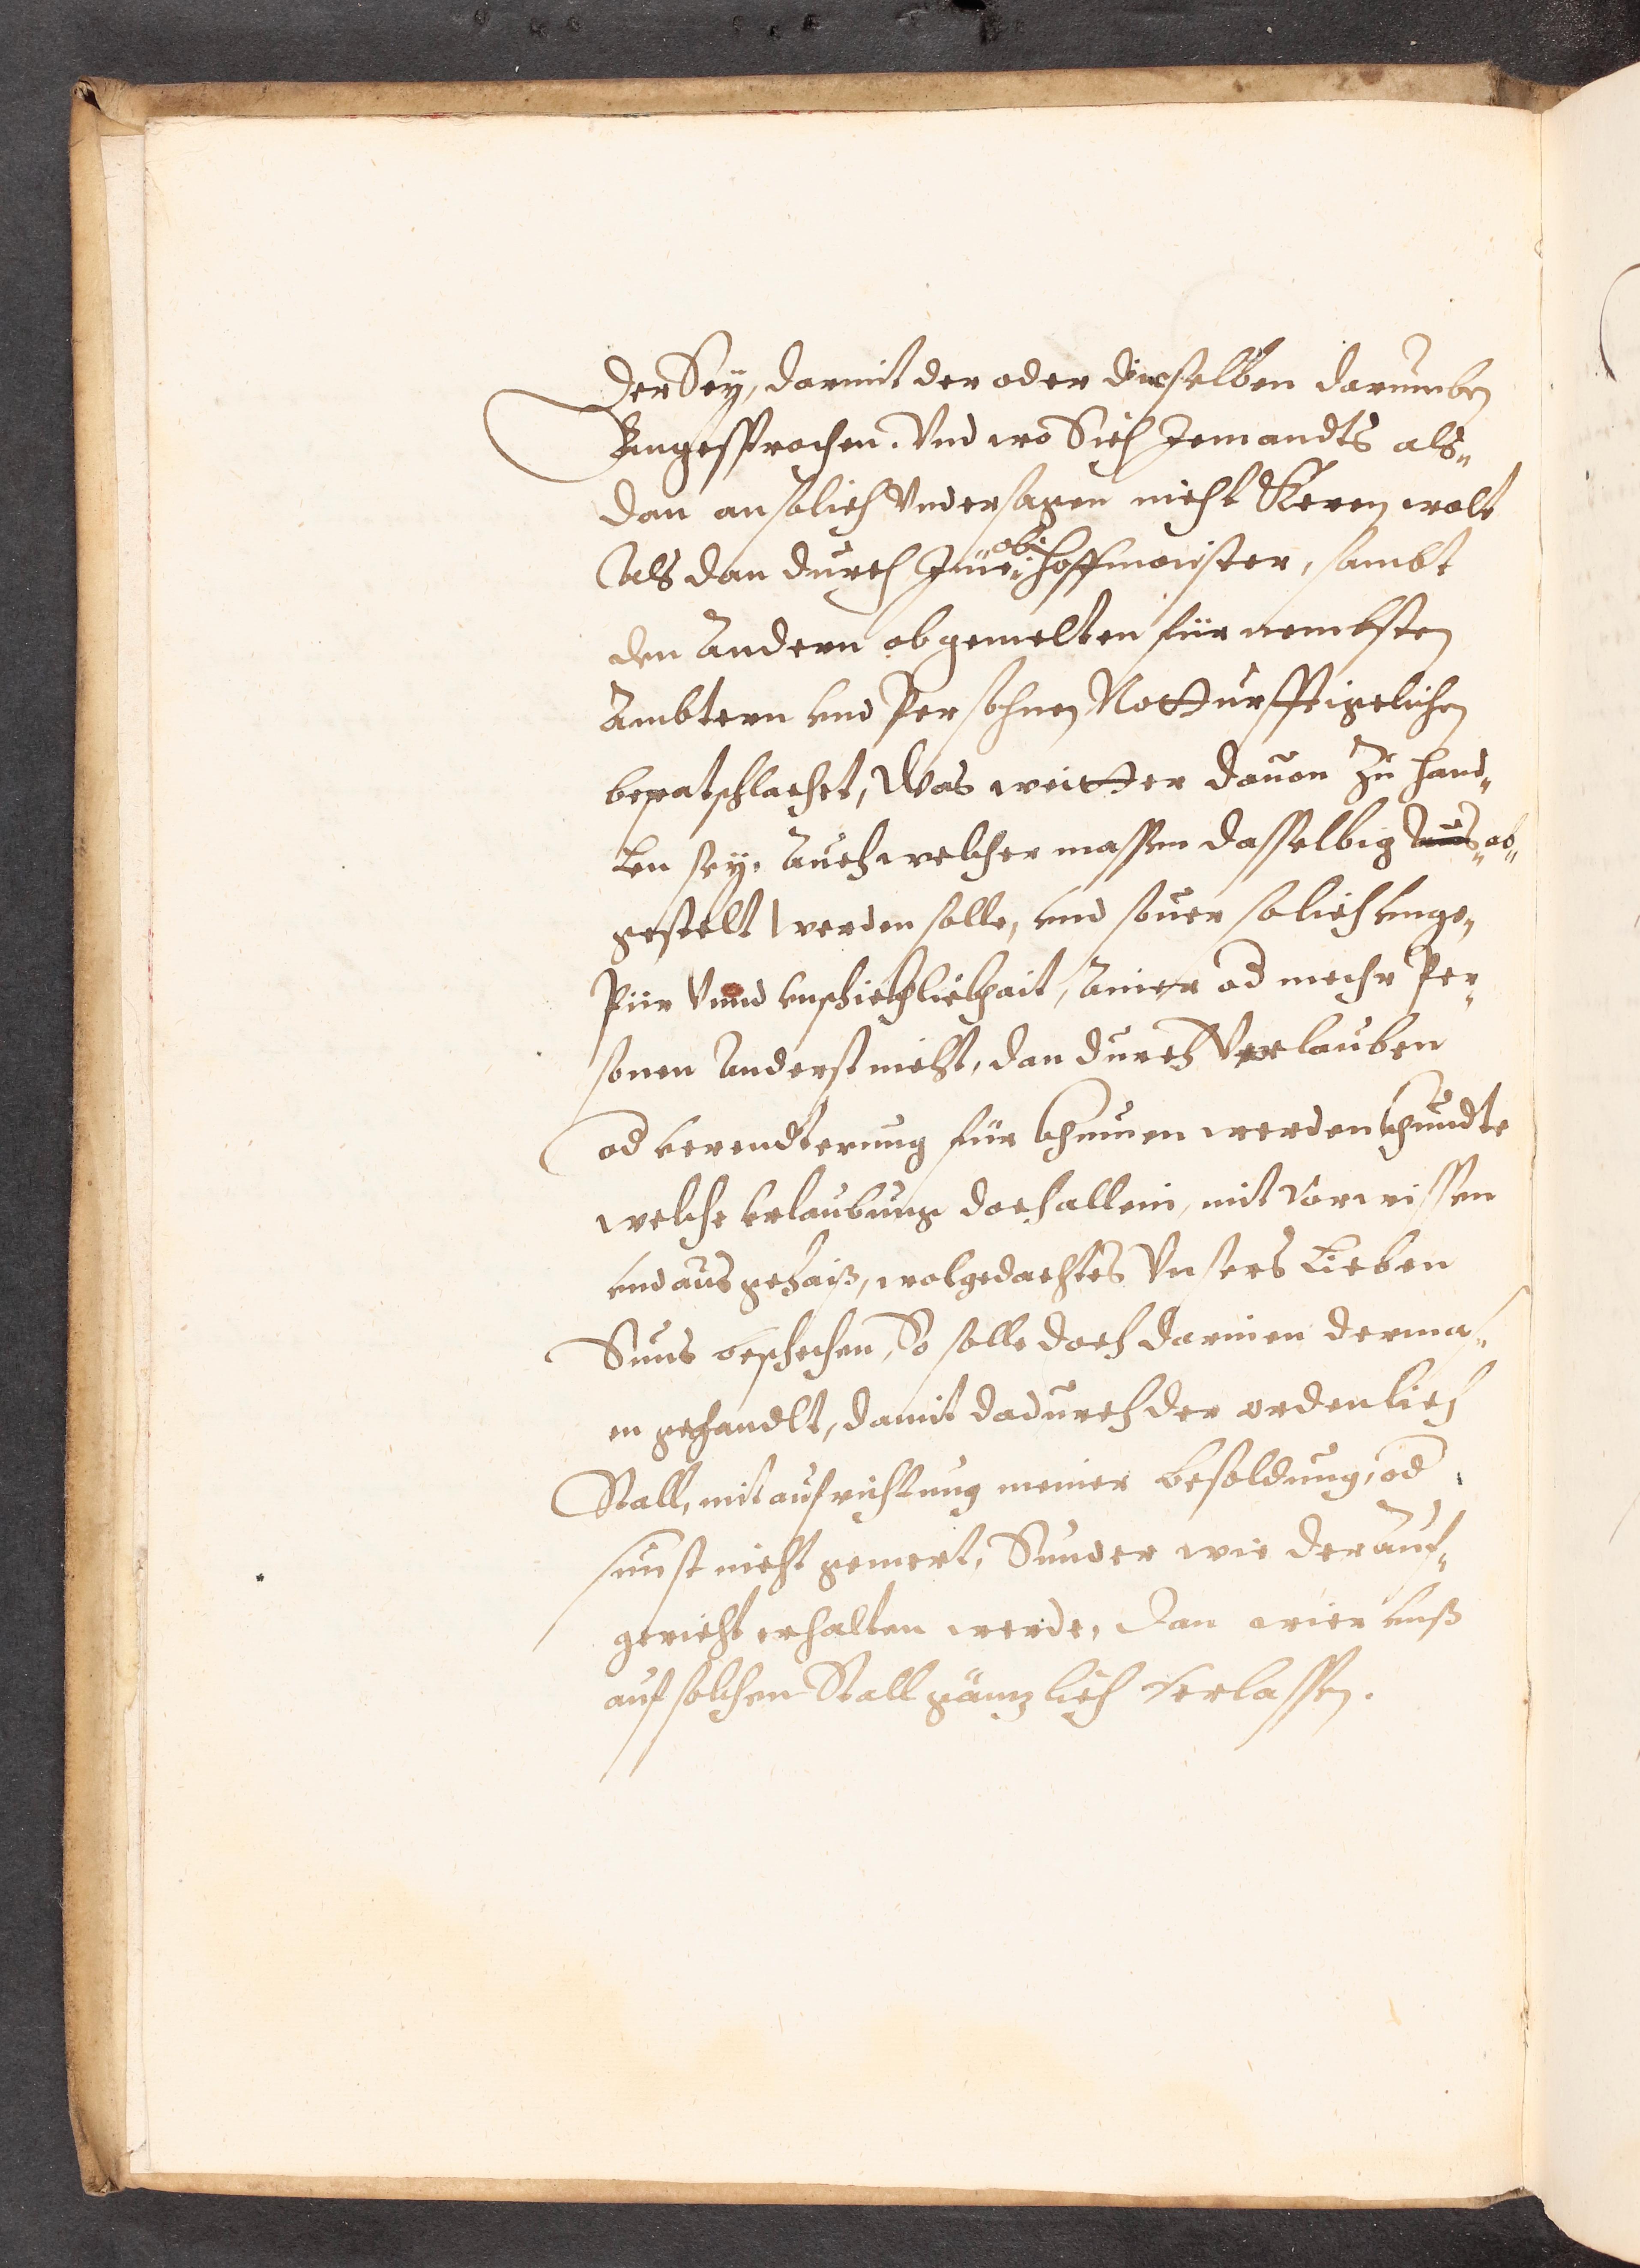 der Sey, darmit der oder dieselben darumben
Angesprochen. Vnd wo Sich Jemandts als„
dan an solich Vndersagen nicht Keren wolt
Als dan durch Jnen obr: hoffmaister, sambt
den Andern obgemelten fürnembsten
Ambtern vnd Persohnen Notturfftigelichen
beratschlachet, Was weitter dauon Zu hand„
len sey. Auch welcher massen dasselbig Aus„ ab„
gestelt werden solle, vnd souer solich vnge„
pür Vnnd vnschickhlickhait, Ainer od mehr Per„
sonen Anderst nicht, dan durch Verlauben
od verendterung für khumen werden khundte
welche erlaubung doch allein, mit vorwissen
vnd aus gehaiß, wolgedachtes Vnsers Lieben
Suns beschechen, So solle doch darinen derma„
en gehandlt, damit dadurch der ordenlich
Stall, mit aufrichtung meiner besoldung, od
sunst nicht gemert, Sunder wie der auf„
gericht erhalten werde, dan wier vnß
auf solchen Stall gänzlich verlassen.